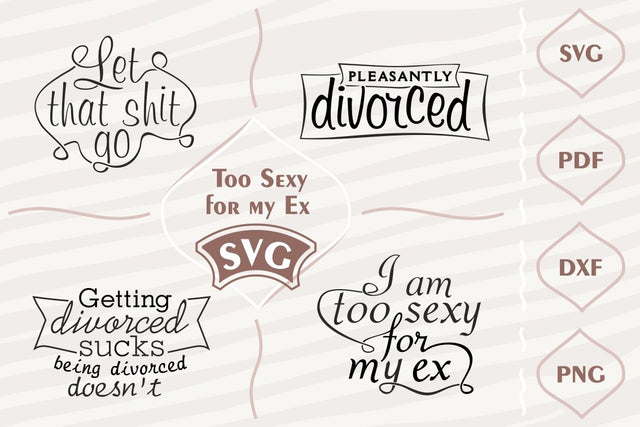 Let
that shit
go
PLEASANTLY
divorced
Too Sexy
for my Ex
SVG
Getting
divorced
sucks
being divorced
doesn't
I am
too sexy
for
my ex
SVG
PDF
DXF
PNG